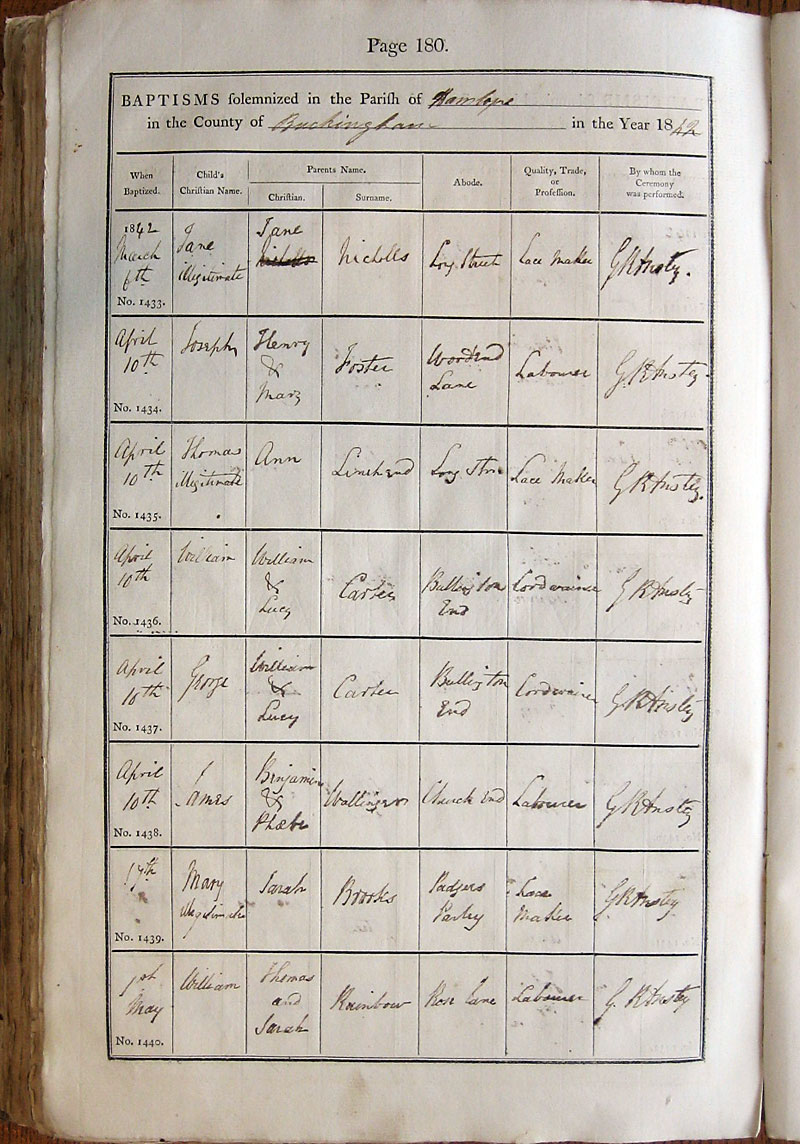 Page 180.
BAPTISMS ſolemnized in the Pariſh of Hanslope
in the County of Buckingham in the Year 1842
When Baptized. Child's Christian Name. Parents Name. Christian. Surname. Abode. Quality, Trade, or Profeſſion. By whom the Ceremony was performed.
1842
March 6th
No. 1433.
Jane
illegitimate
Jane
Nicholls
Nicholls
Long Street
Lace Maker
G R Anstey.
April
10th
No. 1434.
Joseph
Henry
&
Mary
Foster
Woodend
Lane
Labourer
G R Anstey.
April
10th
No. 1435.
Thomas
illegitimate
Ann
Long Stree
Lace Maker
G R Anstey.
April
10th
No. 1436.
William
William
&
Lucy
Carter
Bullington
End
Cordwainer
G R Anstey
April
10th
No. 1437.
George
William
&
Lucy
Carter
Bullington
End
Cordwainer
G R Anstey
April
10th
No. 1438.
James
Benjamin
&
Phœbe
Church End
Labourer
G R Anstey
17th
No. 1439.
Mary
illegitimate
Sarah
Brooks
Lace
Maker
G R Anstey
1st
May
No. 1440.
William
Thomas
and
Sarah
Rainbow
Rose Lane
Labourer
G. R Anstey